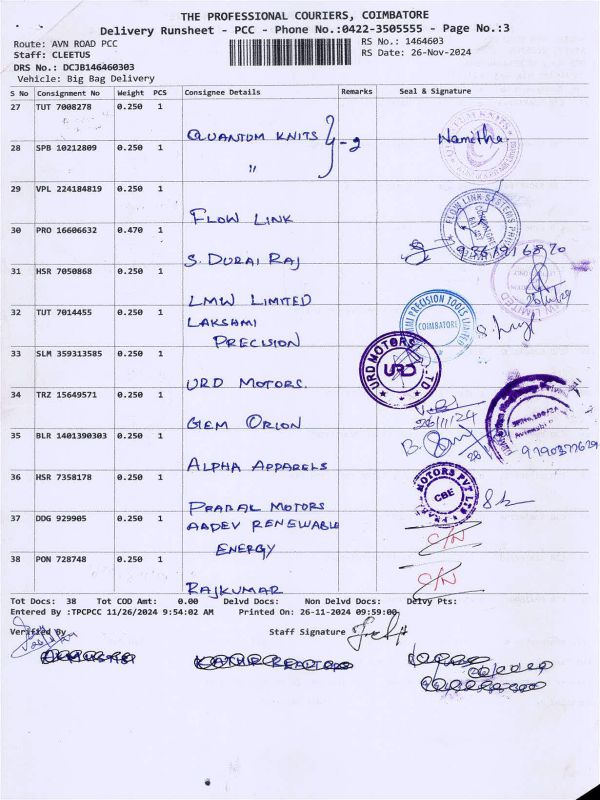 THE PROFESSIONAL COURIERS, COIMBATORE
Delivery Runsheet - PCC - Phone No.:0422-3505555 - Page No.:3
Route: AVN ROAD PCC
RS No.: 1464603
Staff: CLEETUS
RS Date: 26-Nov-2024
DRS No.: DCJB146460303
Vehicle: Big Bag Delivery
S No Consignment No Weight PCS Consignee Details Remarks Seal & Signature
27 TUT 7008278 0.250 1
QUANTUM KNITS - 2 Namitha
28 SPB 10212809 0.250 1
"
29 VPL 224184819 0.250 1
FLOW LINK
30 PRO 16606632 0.470 1
S. DURAI RAJ
31 HSR 7050868 0.250 1
LMW LIMITED
32 TUT 7014455 0.250 1
LAKSHMI
PRECISION
COIMBATORE
33 SLM 359313585 0.250 1
URD MOTORS.
URD
34 TRZ 15649571 0.250 1
GEM ORION
26/11/24
35 BLR 1401390303 0.250 1
ALPHA APPARELS
36 HSR 7358178 0.250 1
PRABAL MOTORS
CBE
37 DDG 929905 0.250 1
AADEV RENEWABLE
ENERGY
C/N
38 PON 728748 0.250 1
RAJKUMAR
C/N
Tot Docs: 38 Tot COD Amt: 0.00 Delvd Docs: Non Delvd Docs: Delvy Pts:
Entered By :TPCPCC 11/26/2024 9:54:02 AM Printed On: 26-11-2024 09:59:00
Verified By
Staff Signature